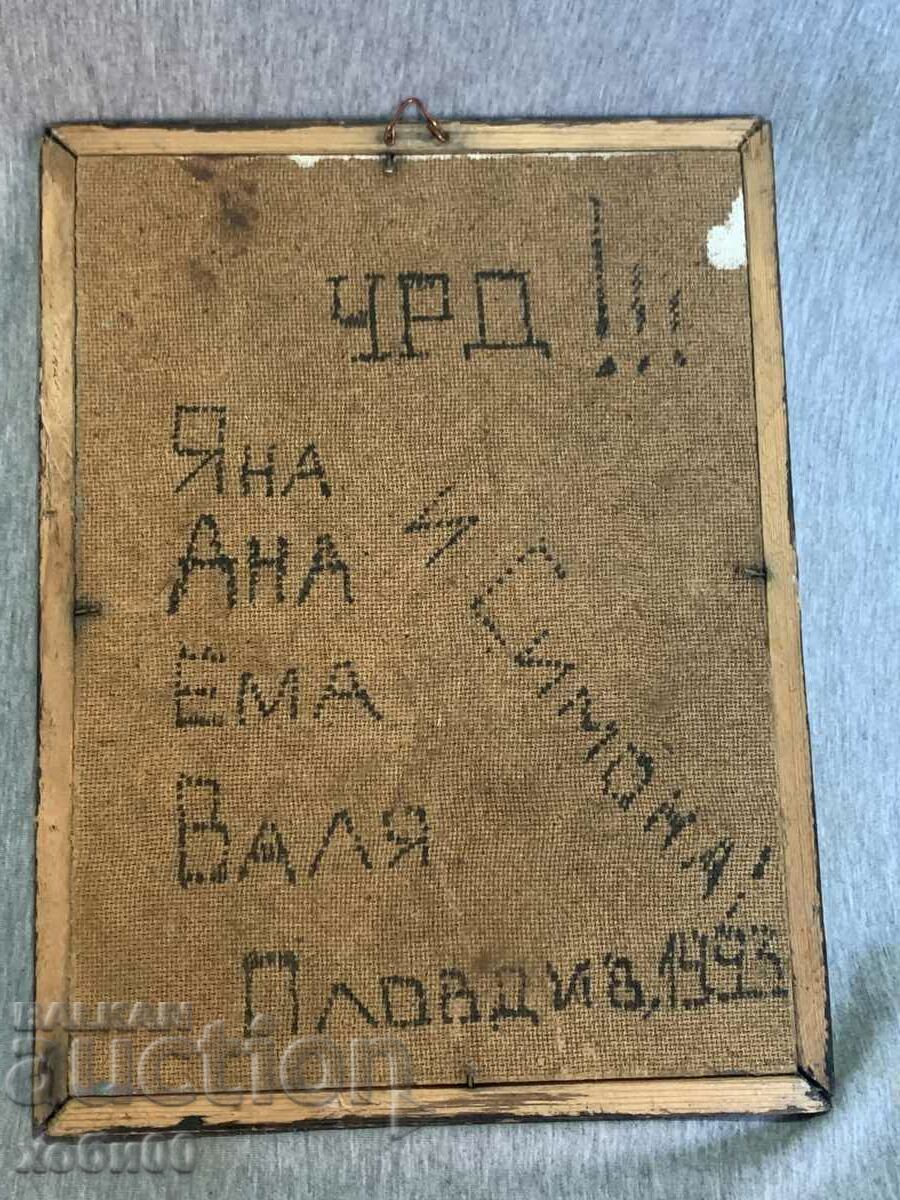 ЧРД!!!
Яна
Ана
Ема
Валя
и Симона!
Пловдив, 1993
BALKAN
auction
хоби00